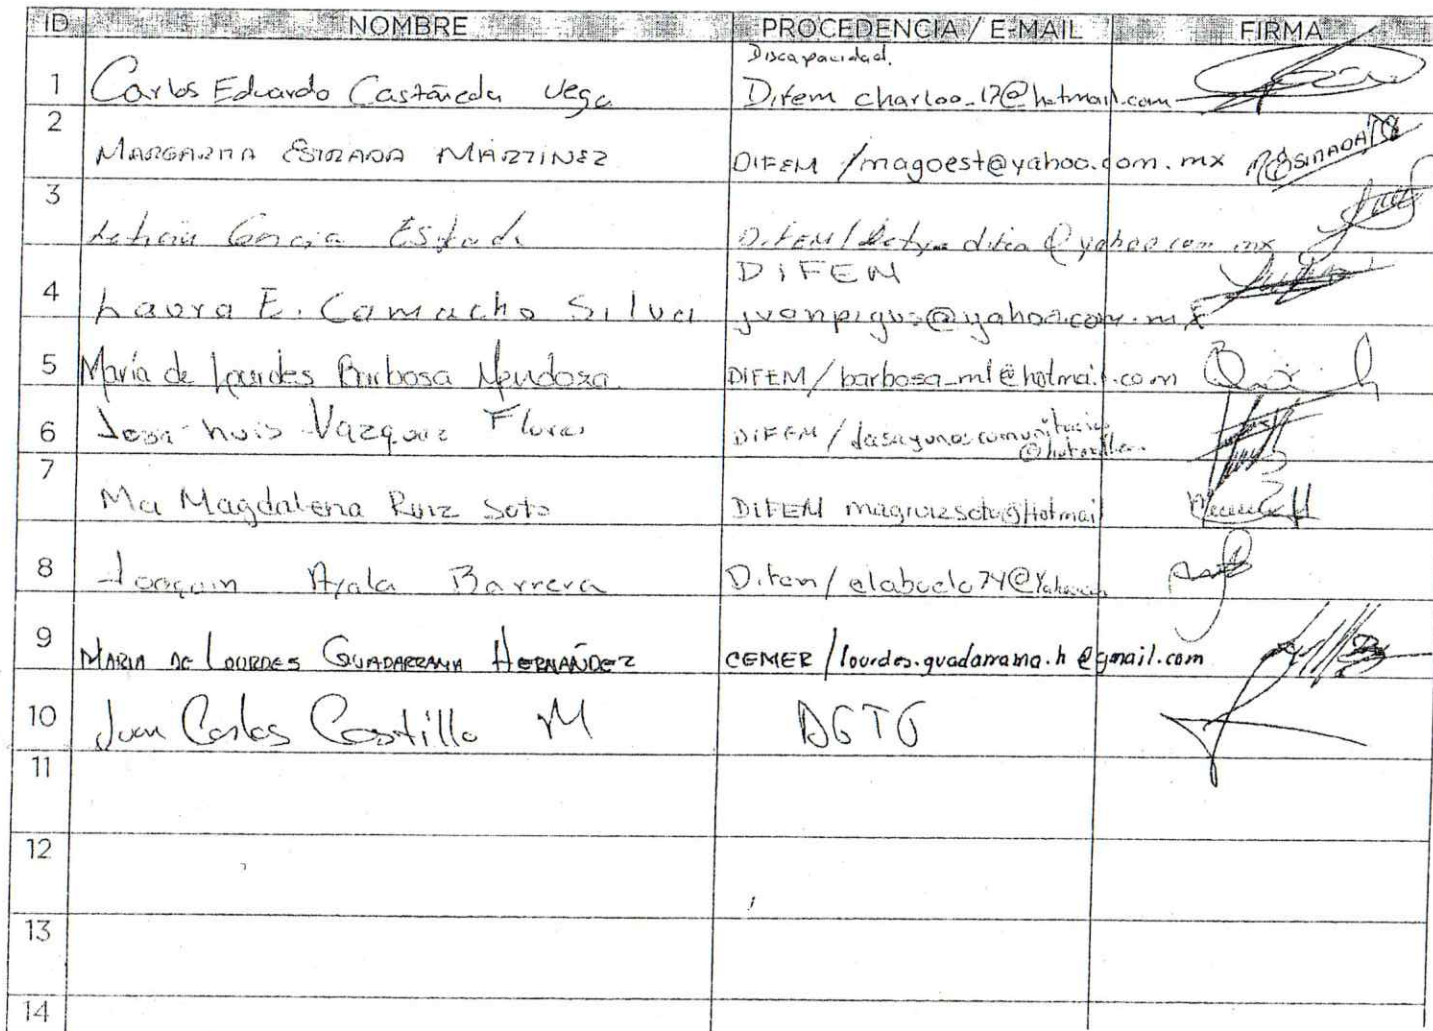 ID NOMBRE PROCEDENCIA / E-MAIL FIRMA
Discapacidad.
1 Carlos Eduardo Castañeda Vega Difem charloo_17@hotmail.com
2 MARGARITA ESTRADA MARTINEZ DIFEM /magoest@yahoo.com.mx
3 Leticia Garcia Estrada DIFEM/ @yahoo.com.mx
DIFEM
4 Laura E. Camacho Silva @yahoo.com.mx
5 María de Lourdes Barbosa Mendoza DIFEM/barbosa_ml@hotmail.com
6 Jose Luis Vazquez Flores DIFEM/
7 Ma Magdalena Ruiz Soto DIFEM magruizsoto@Hotmail
8 Joaquin Ayala Barrera Difem/elabuelo74@
9 MARIA DE LOURDES GUADARRAMA HERNÁNDEZ CEMER /lourdes.guadarrama.h@gmail.com
10 Juan Carlos Castillo M DGTG
11
12
13
14